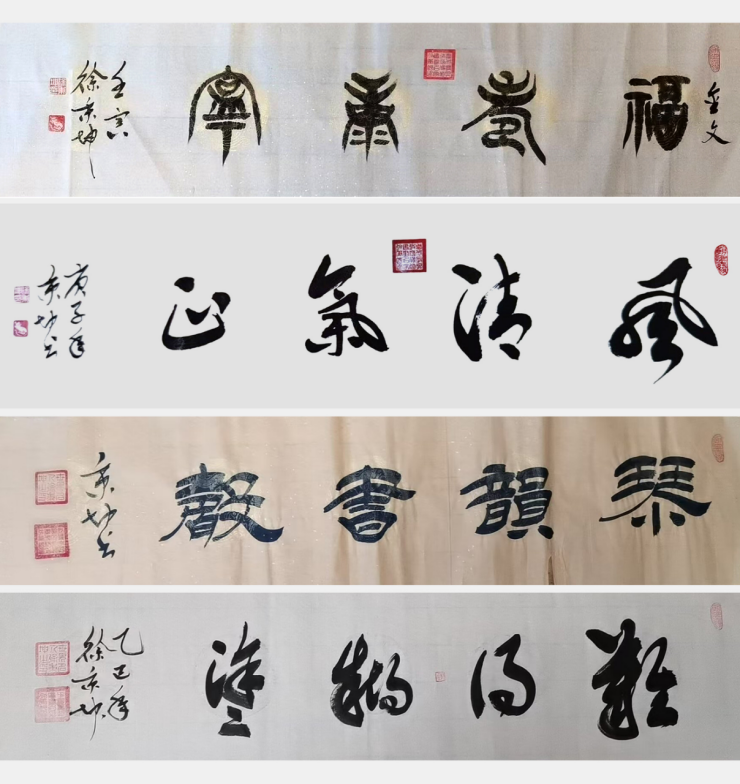 金文
福壽康寧
壬寅
徐京坤
風清氣正
庚子年
京坤书
琴韻書聲
京坤书
難得糊塗
乙巳年
徐京坤